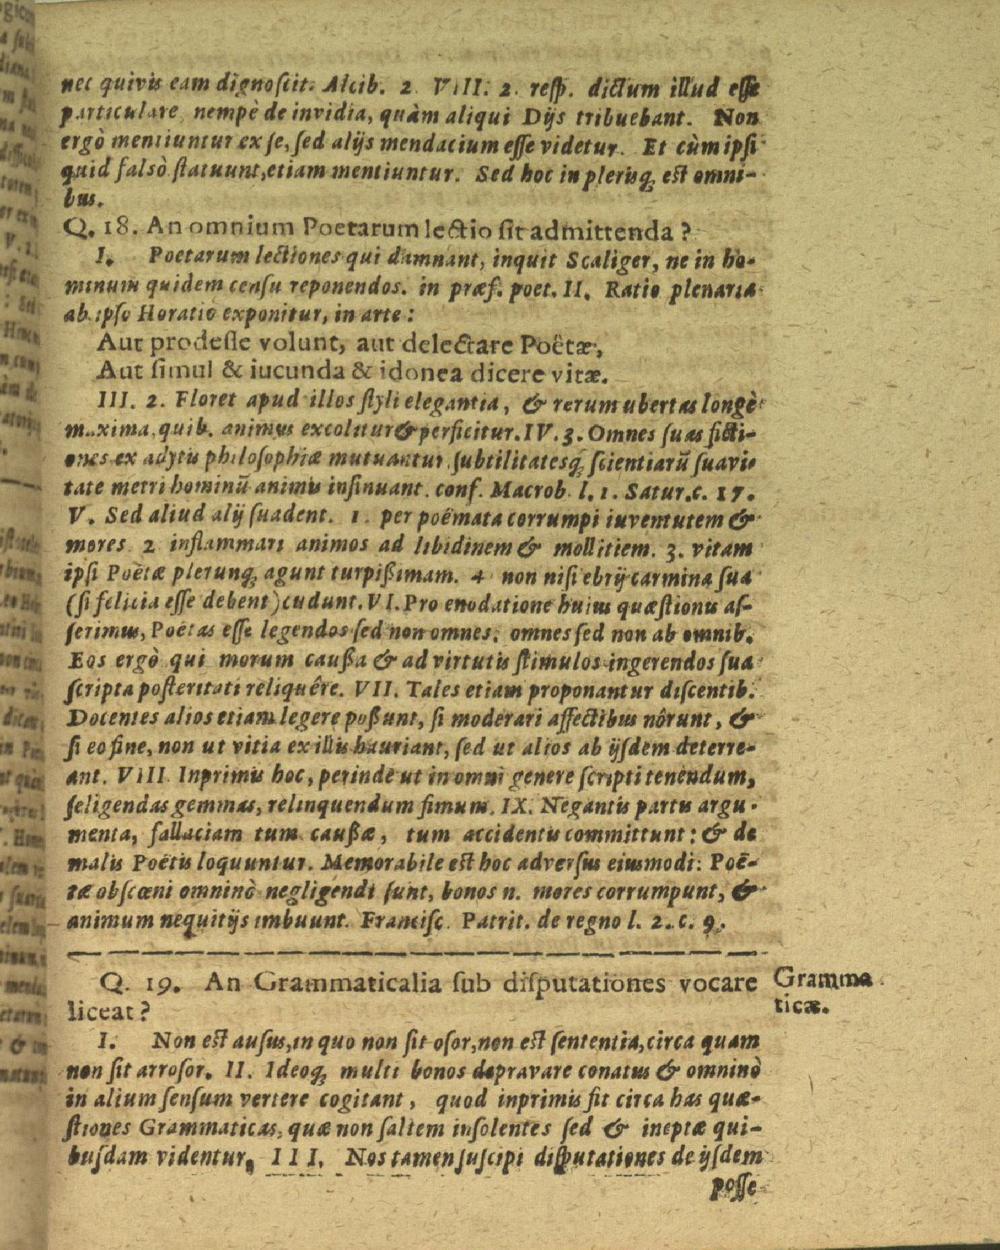 nec quivis eam dignoscit. Alcib. 2. VIII. 2. resp. dictum illud esse
particulare, nempè de invidia, quàm aliqui Dijs tribuebant. Non
ergò mentiuntur ex se, sed alijs mendacium esse videtur. Et cùm ipsi
quid falsò statuunt, etiam mentiuntur. Sed hoc in plerisq́; est omni-
bus.
Q. 18. An omnium Poetarum lectio sit admittenda?
I. Poetarum lectiones qui damnant, inquit Scaliger, ne in ho-
minum quidem censu reponendos. in præf. poet. II. Ratio plenaria
ab ipso Horatio exponitur, in arte:
Aut prodesse volunt, aut delectare Poëtæ,
Aut simul & iucunda & idonea dicere vitæ.
III. 2. Floret apud illos styli elegantia, & rerum ubertas longè
maxima, quib. animus excolitur & perficitur. IV. 3. Omnes suas ficti-
ones ex adytis philosophiæ mutuantur, subtilitatesq́; scientiarū suavi-
tate metri hominū animis insinuant. conf. Macrob. l. 1. Satur. c. 17.
V. Sed aliud alij suadent. 1. per poëmata corrumpi iuventutem &
mores. 2. inflammari animos ad libidinem & mollitiem. 3. vitam
ipsi Poëtæ plerunq́; agunt turpißimam. 4. non nisi ebrij carmina sua
(si felicia esse debent) cudunt. VI. Pro enodatione huius quæstionis as-
serimus, Poëtas esse legendos sed non omnes: omnes sed non ab omnib.
Eos ergò qui morum caußa & ad virtutis stimulos ingerendos sua
scripta posteritati reliquêre. VII. Tales etiam proponantur discentib.
Docentes alios etiam legere poßunt, si moderari affectibus nôrunt, &
si eo fine, non ut vitia ex illis hauriant, sed ut alios ab ijsdem deterre-
ant. VIII. Inprimis hoc, perinde ut in omni genere scripti tenendum,
seligendas gemmas, relinquendum fimum. IX. Negantis partis argu-
menta, fallaciam tum caußæ, tum accidentis committunt: & de
malis Poëtis loquuntur. Memorabile est hoc adversus eiusmodi: Poë-
tæ obscœni omninò negligendi sunt, bonos n. mores corrumpunt, &
animum nequitijs imbuunt. Francisc. Patrit. de regno l. 2. c. 9.
Q. 19. An Grammaticalia sub disputationes vocare
liceat?
Gramma
ticæ.
I. Non est ausus, in quo non sit osor, non est sententia, circa quam
non sit arrosor. II. Ideoq́; multi bonos depravare conatus & omninò
in alium sensum vertere cogitant, quod inprimis fit circa has quæ-
stiones Grammaticas, quæ non saltem insolentes sed & ineptæ qui-
busdam videntur. III. Nos tamen suscipi disputationes de ijsdem
posse